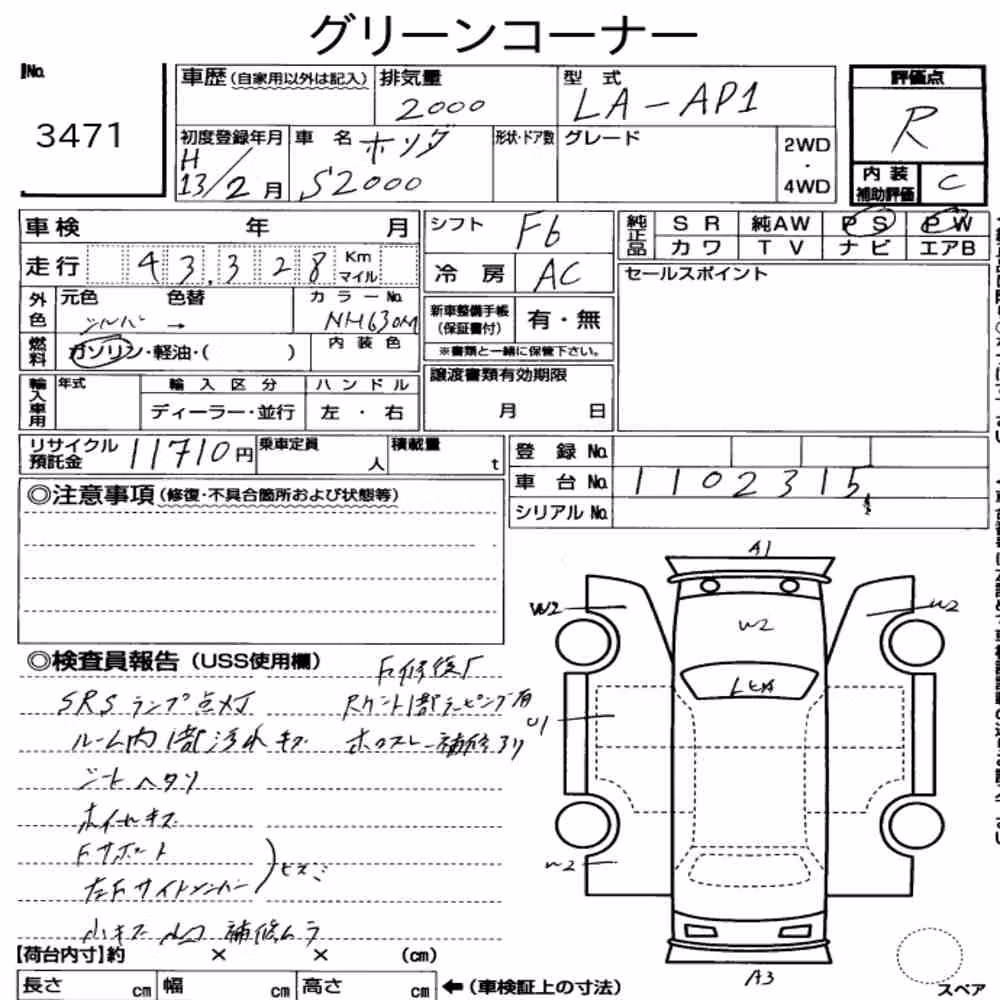 グリーンコーナー
No. 3471
車歴(自家用以外は記入) 排気量 2000 型式 LA-AP1
初度登録年月 H13/2月 車名 ホンダ S2000 形状・ドア数 グレード 2WD・4WD
評価点 R
内装補助評価 C
車検 年 月
走行 43,328 Km マイル
外色 元色 シルバー 色替 → カラーNo. NH630M
燃料 ガソリン・軽油・( ) 内装色
輸入車用 年式 輸入区分 ハンドル
ディーラー・並行 左・右
シフト F6
冷房 AC
新車整備手帳(保証書付) 有・無
※書類と一緒に保管下さい。
譲渡書類有効期限
月 日
純正品 SR 純AW PS PW
カワ TV ナビ エアB
セールスポイント
リサイクル預託金 11710円 乗車定員 人 積載量 t
登録No.
車台No. 1102315
シリアルNo.
◎注意事項(修復・不具合箇所および状態等)
◎検査員報告(USS使用欄)
F修復有
SRSランプ点灯
ルーム内1部汚れキズ
補修アリ
シートヘタリ
ホイールキズ
Fサポート
左Fサイドメンバー
小キズ 凹 補修ムラ
A1
W2
W2
W2
U1
W2
A3
【荷台内寸】約 × × (cm)
長さ cm 幅 cm 高さ cm ←(車検証上の寸法)
スペア